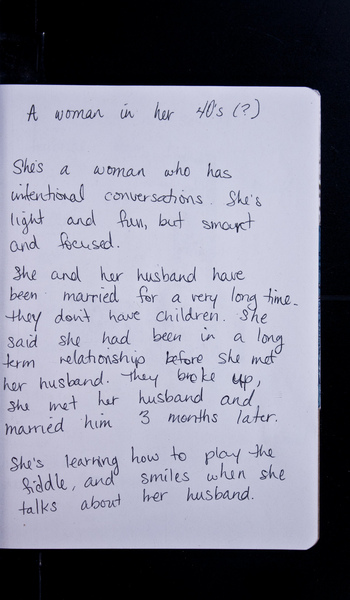 A woman in her 40's (?)
She's a woman who has
intentional conversations. She's
light and fun, but smart
and focused.
She and her husband have
been married for a very long time.
They don't have children. She
said she had been in a long
term relationship before she met
her husband. They broke up,
she met her husband and
married him 3 months later.
She's learning how to play the
fiddle, and smiles when she
talks about her husband.